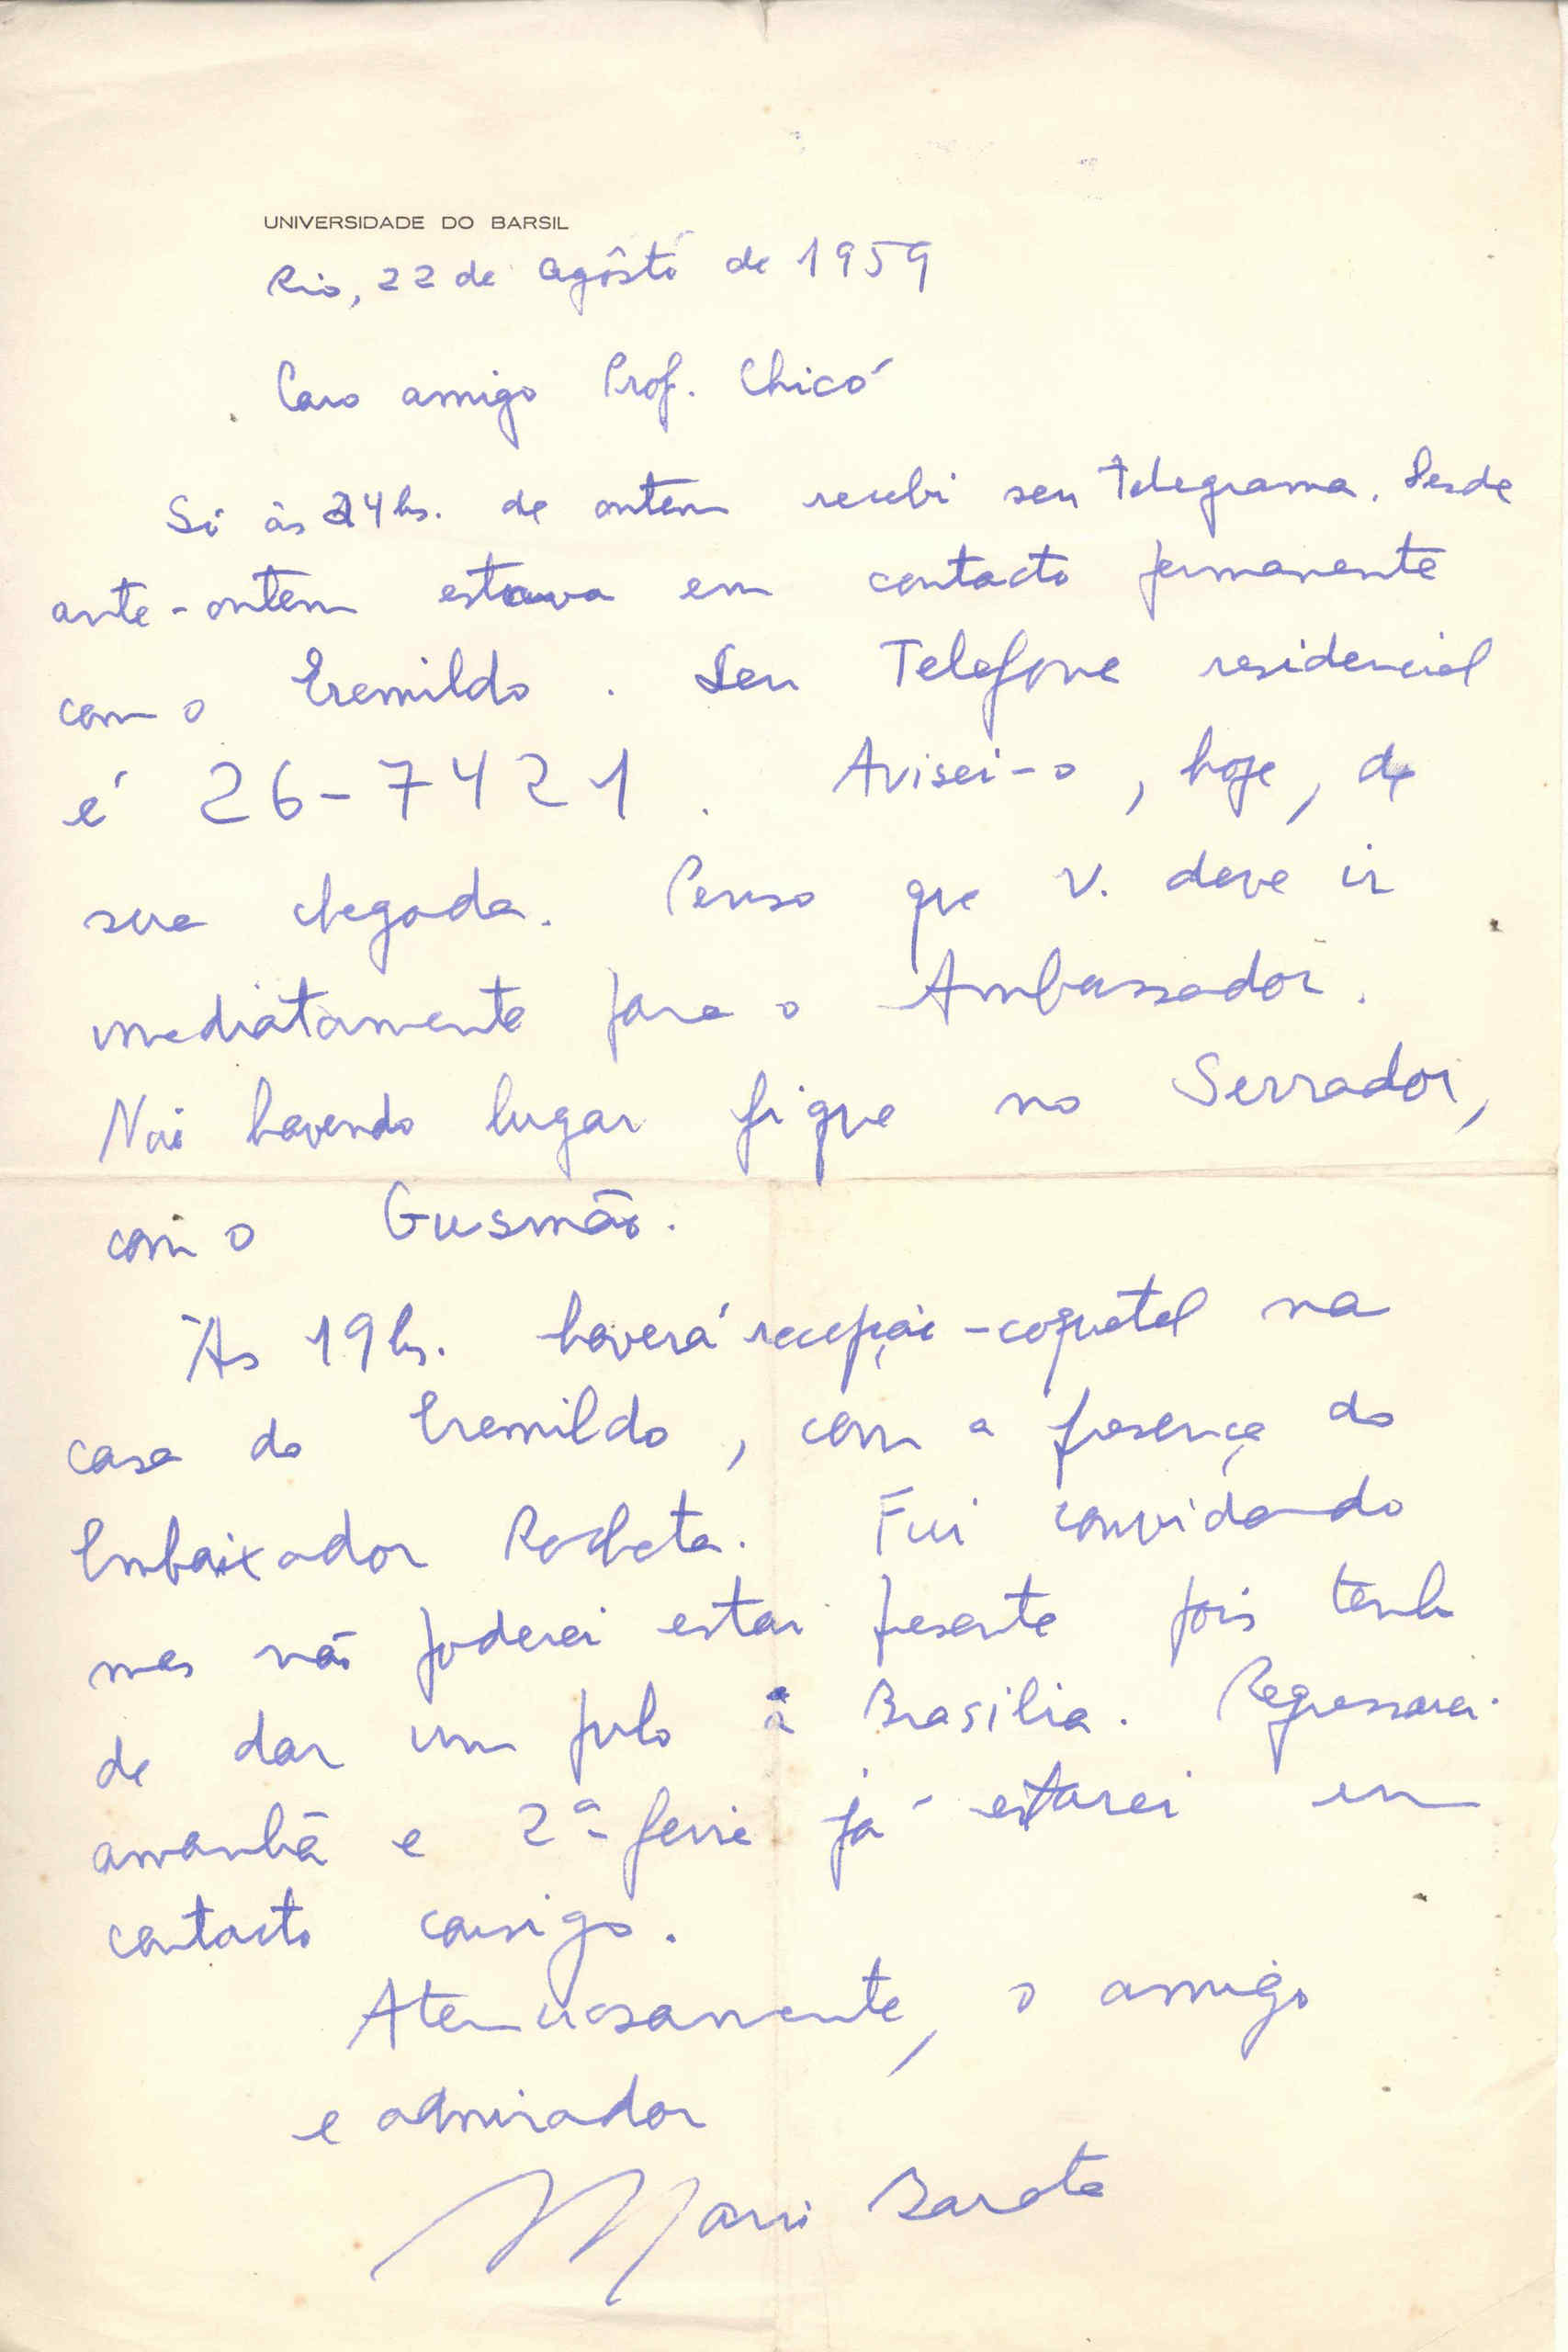 UNIVERSIDADE DO BARSIL
Rio, 22 de agôsto de 1959
Caro amigo Prof. Chicó
Só às 24 hs. de ontem recebi seu telegrama. Desde
ante-ontem estava em contacto permanente
com o Eremildo. Seu Telefone residencial
é 26-7421. Avisei-o, hoje, de
sua chegada. Penso que V. deve ir
imediatamente para o Ambassador.
Não havendo lugar fique no Serrador,
com o Gusmão.
Às 19 hs. haverá recepção-coquetel na
casa do Eremildo, com a presença do
Embaixador Rocheta. Fui convidado
mas não poderei estar presente pois tenho
de dar um pulo à Brasilia. Regressarei
amanhã e 2ª feira já estarei em
contacto consigo.
Atenciosamente, o amigo
e admirador
Mario Barata